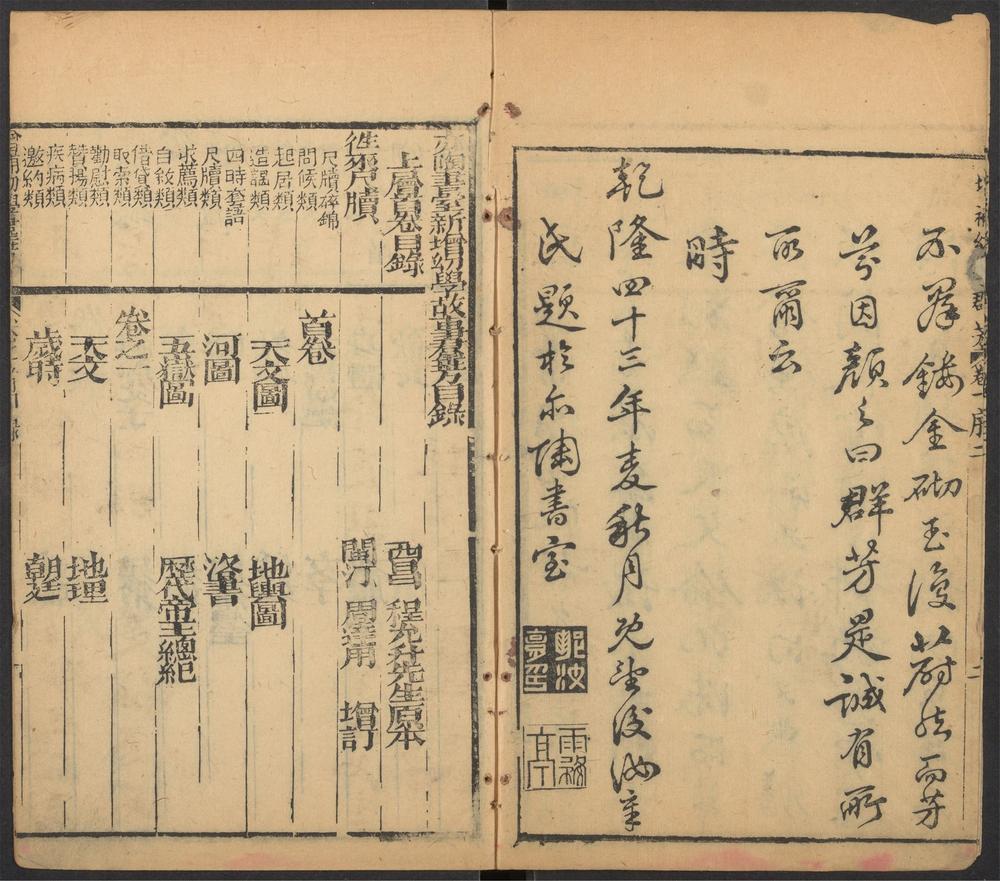 不羣鏤金砌玉復蔚然而芳
芬因顏之曰群芳是誠有所
取爾云
時
乾隆四十三年麦秋月既望後汝辛
氏題於亦陶書室
亦陶書室新增幼學故事群芳目錄
上層首卷目錄
徃來尺牘
尺牘碎錦
問候類
起居類
造謁類
四時套語
尺牘類
求薦類
自敘類
借貸類
取索類
勸慰類
贊揚類
疾病類
邀約類
西昌 程允升先生原本
閩汀 周達用 增訂
首卷
天文圖 地輿圖
河圖 洛書
五嶽圖 歷代帝王總紀
卷之一
天文 地理
歲時 朝廷